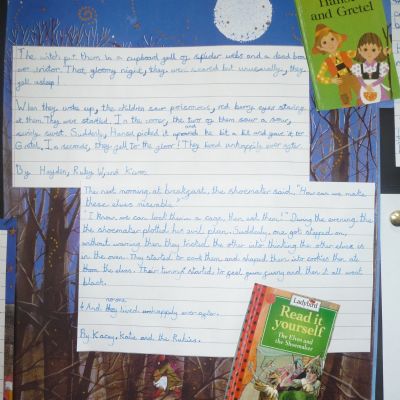 Hansel
and Gretel
The witch put them in a cupboard full of spider webs and a dead bone
That gloomy night, they were scared but unusually, they
fell asleep!
When they woke up, the children saw poisonous, red berry eyes staring
at them. They were startled. In the corner, the two of them saw a sour,
sweet. Suddenly, Hansel picked it up and he bit a bit and gave it to
Gretel. In a seconds, they fell to the floor! They lived unhappily ever after.
By Hayden, Ruby W, and
The next morning, at breakfast, the shoemaker said, "How can we make
these elves miserble?"
"I know, we can lock them in a cage, then eat them!" During the evening, the
the shoemaker plotted his evil plan. Suddenly, one got stepped on,
without warning then they tricked the other into thinking the other elves is
in the oven. They started to cook them and shaped them into cookies then ate
the elves. Their tummys started to feel funny and then it all went
black.
none
And they lived unhappily ever after.
By Kacey, Katie and the Rubies.
Ladybird
Read it
yourself
The Elves and
the Shoemaker